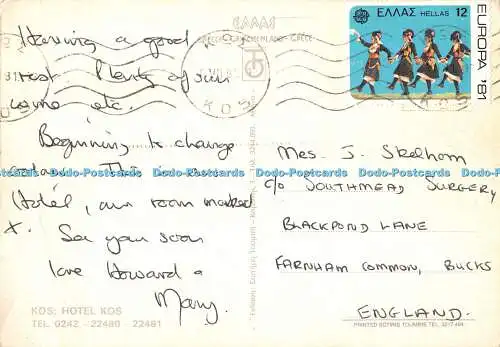 Having a good
rest. Plenty of sun
wine etc.
Beginning to change
colour. This is our
Hotel, our room marked
X. See you soon
love Howard &
Mary.
KOS: HOTEL KOS
TEL. 0242 - 22480 22481
ΕΛΛΑΣ HELLAS 12
EUROPA '81
ΚΟΣ
Mrs. J. Skelhorn
c/o SOUTHMEAD SURGERY
BLACKPOND LANE
FARNHAM COMMON, BUCKS
ENGLAND.
Dodo-Postcards Dodo-Postcards Dodo-Postcards Dodo-Postcards Dodo-Postcards